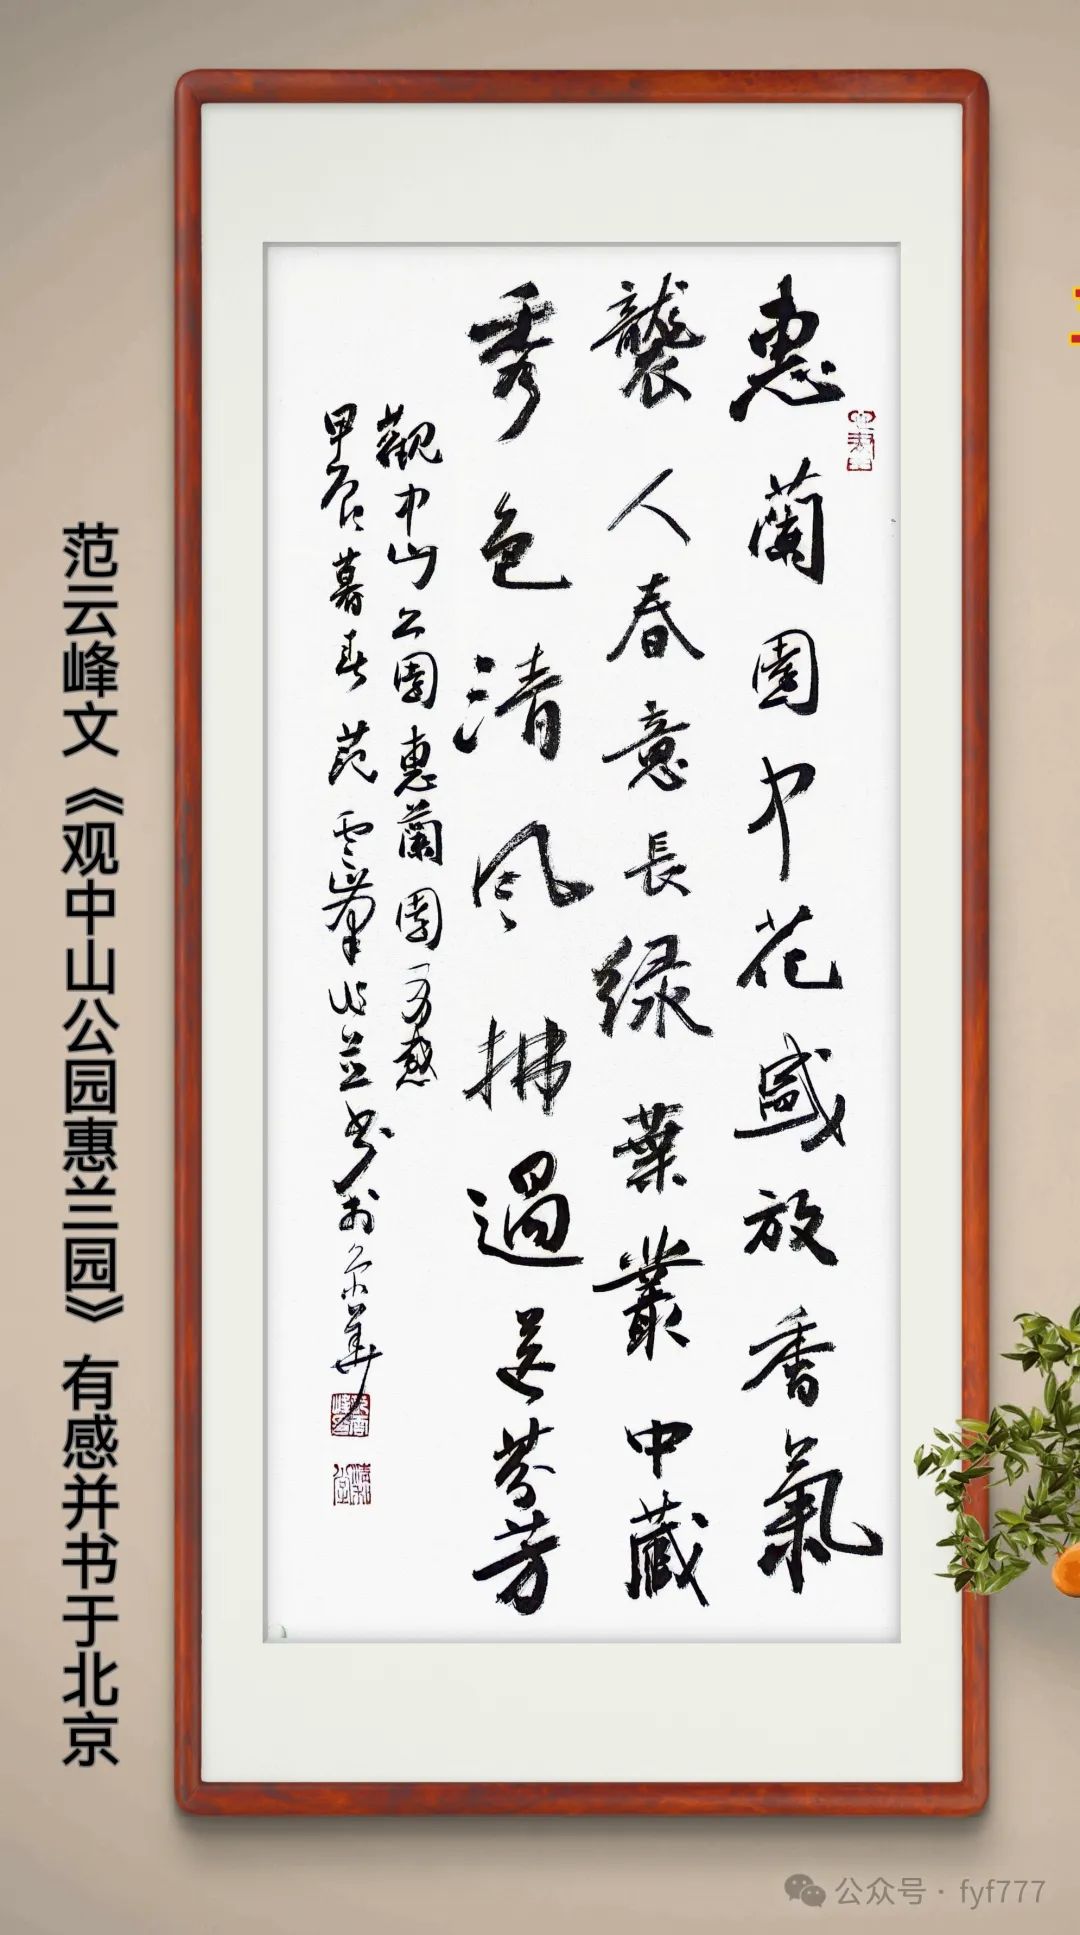 惠蘭園中花盛放香氣
襲人春意長绿葉叢中藏
秀色清风拂過送芬芳
觀中山公園惠蘭園有感
甲辰暮春范雲峯作並书於京華
范云峰文《观中山公园惠兰园》有感并书于北京
公众号·fyf777